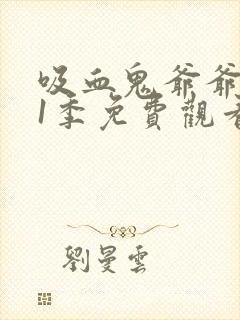 吸血鬼爺爺
1季免費觀看
劉曼雲